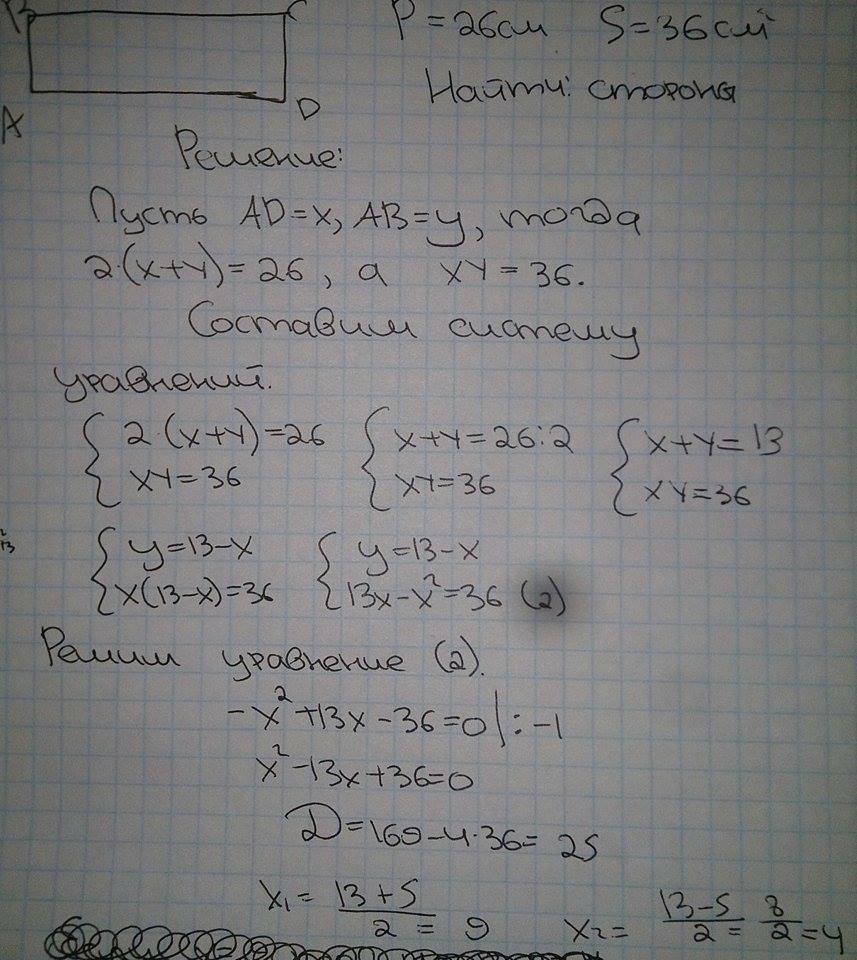 B C P = 26см S = 36см²
Найти: стороны
A D
Решение:
Пусть AD=x, AB=y, тогда
2·(x+y)=26, а xy=36.
Составим систему
уравнений.
{ 2·(x+y)=26 { x+y=26:2 { x+y=13
{ xy=36 { xy=36 { xy=36
{ y=13-x { y=13-x
{ x(13-x)=36 { 13x-x²=36 (2)
Решим уравнение (2).
-x²+13x-36=0 |:-1
x²-13x+36=0
D=169-4·36= 25
x₁= (13+5)/2 = 9 x₂= (13-5)/2 = 8/2 =4